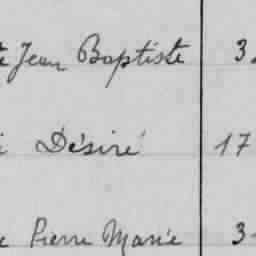 Jean Baptiste 3
Désiré 17
Pierre Marie 3